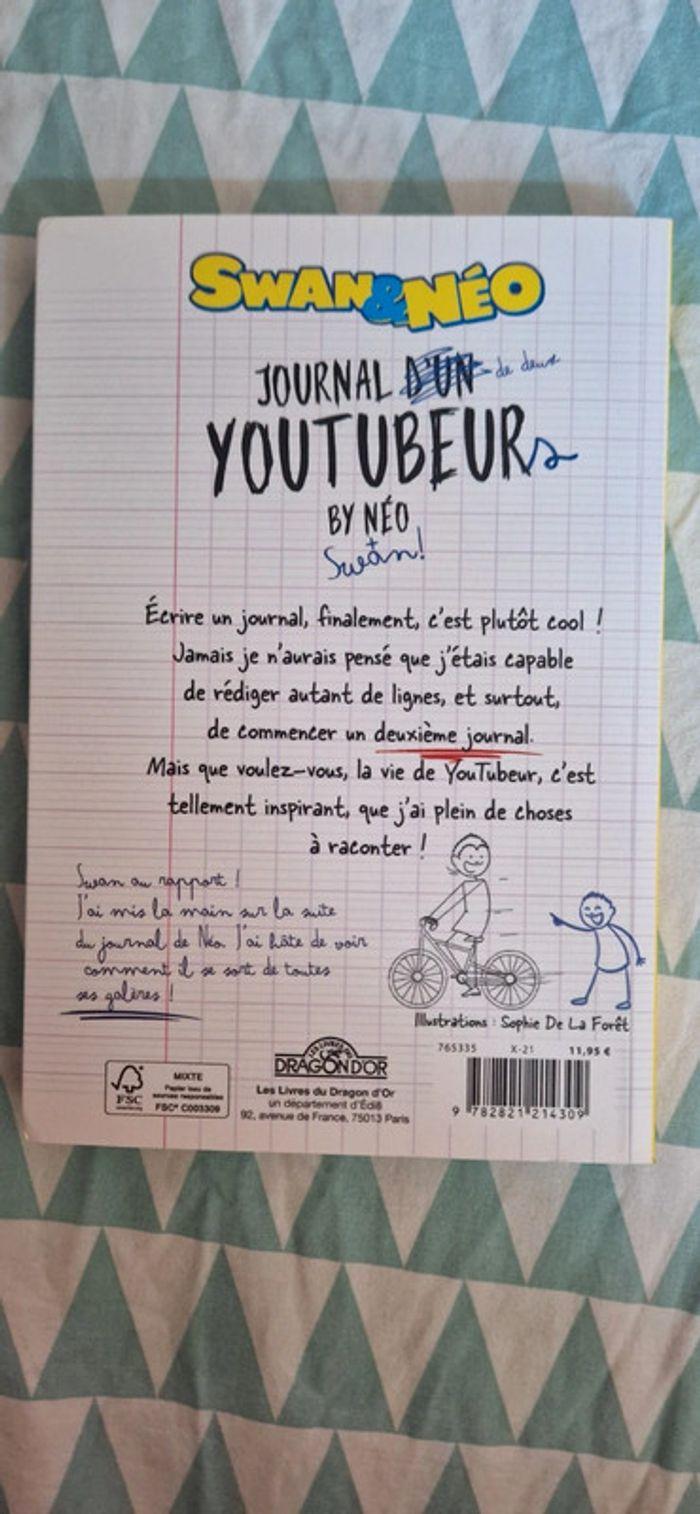 SWAN&NÉO
JOURNAL D'UN de deux
YOUTUBEURs
BY NÉO
+ Swan!
Écrire un journal, finalement, c'est plutôt cool !
Jamais je n'aurais pensé que j'étais capable
de rédiger autant de lignes, et surtout,
de commencer un deuxième journal.
Mais que voulez-vous, la vie de YouTubeur, c'est
tellement inspirant, que j'ai plein de choses
à raconter !
Swan au rapport !
J'ai mis la main sur la suite
du journal de Néo. J'ai hâte de voir
comment il se sort de toutes
ses galères !
Illustrations : Sophie De La Forêt
765335 X-21 11,95 €
9 782821 214309
LES LIVRES DU
DRAGON D'OR
Les Livres du Dragon d'Or
un département d'Édi8
92, avenue de France, 75013 Paris
FSC
MIXTE
Papier issu de
sources responsables
FSC® C003309